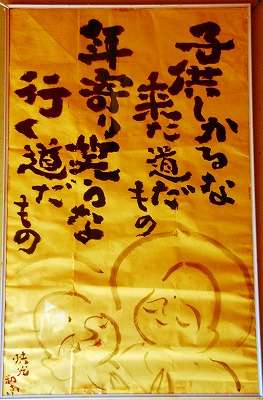 子供しかるな
来た道だもの
年寄り笑うな
行く道だ
もの